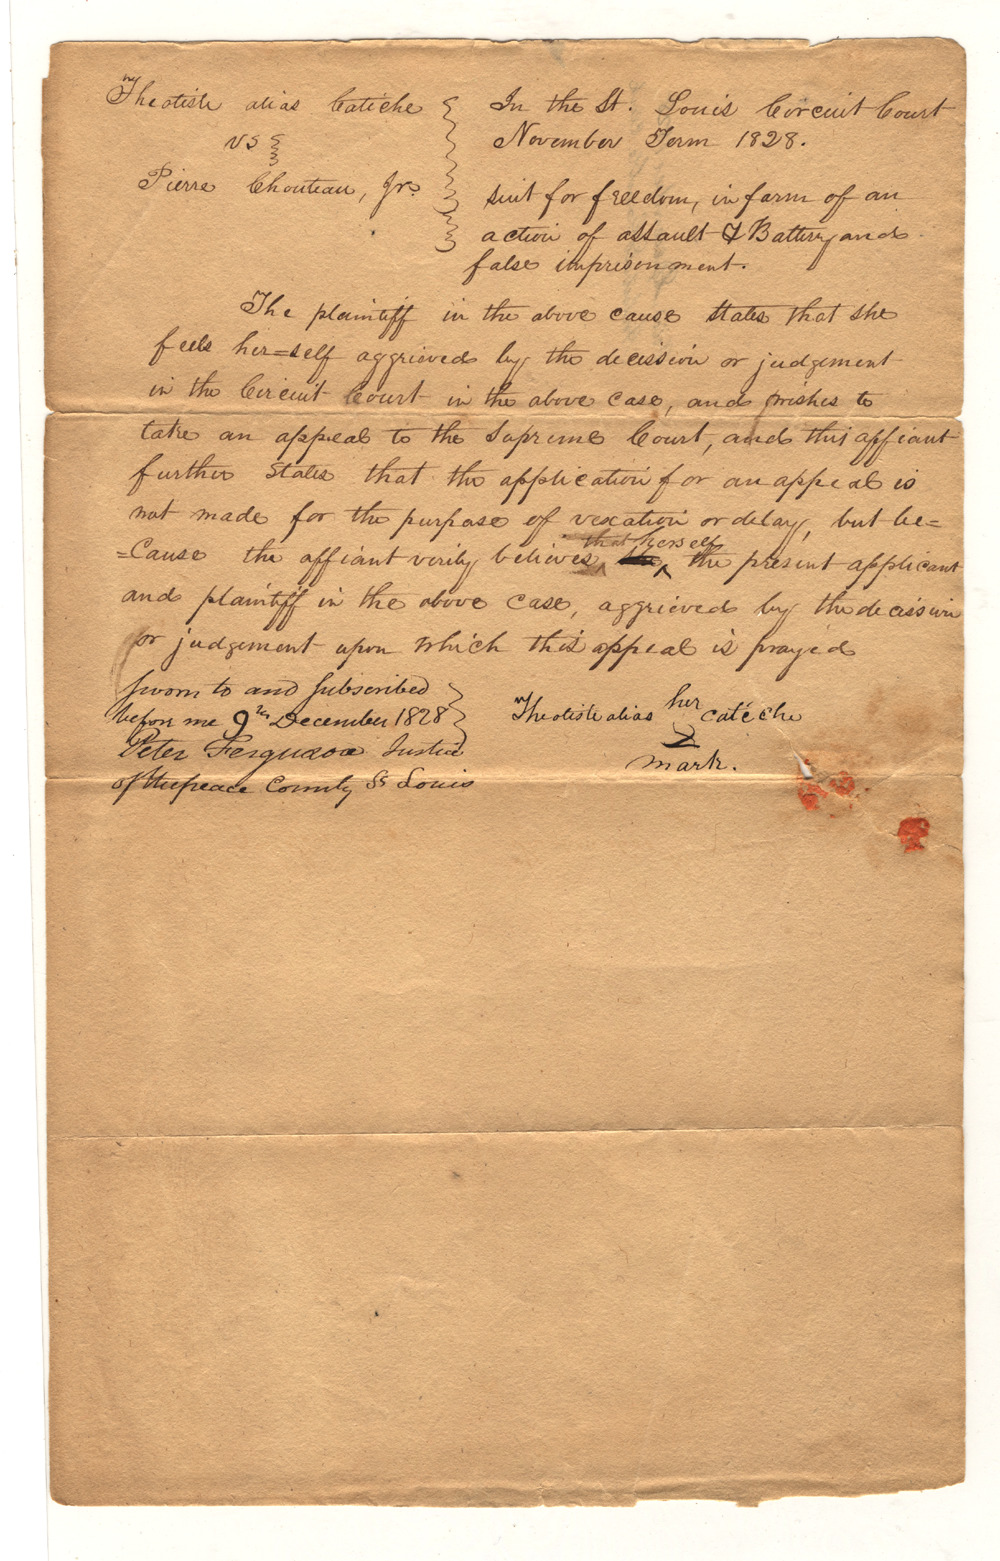 Theotiste alias Catiche
vs
Pierre Chouteau, Jr.
In the St. Louis Circuit Court
November Term 1828.
suit for freedom, in form of an
action of assault & Battery and
false imprisonment.
The plaintiff in the above cause states that she
feels her=self aggrieved by the decission or judgement
in the Circuit Court in the above case, and wishes to
take an appeal to the Supreme Court, and this affiant
further states that the application for an appeal is
not made for the purpose of vexation or delay, but be=
that herself
=cause the affiant verily believes the present applicant
and plaintiff in the above case, aggrieved by the decission
or judgement upon which this appeal is prayed
Sworn to and subscribed
before me 9th December 1828
Peter Ferguson Justice
of the peace County St Louis
her
Theotiste alias catéche
mark.